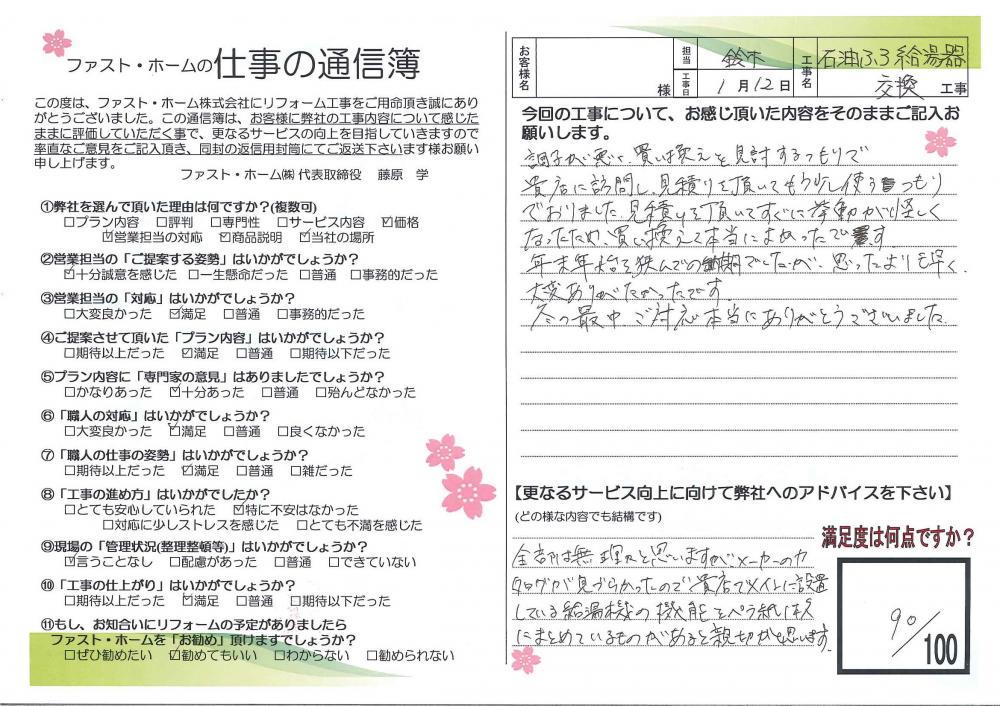 ファスト・ホームの仕事の通信簿
この度は、ファスト・ホーム株式会社にリフォーム工事をご用命頂き誠にあり
がとうございました。この通信簿は、お客様に弊社の工事内容について感じた
ままに評価していただく事で、更なるサービスの向上を目指していきますので
率直なご意見をご記入頂き、同封の返信用封筒にてご返送下さいます様お願い
申し上げます。
ファスト・ホーム㈱ 代表取締役 藤原 学
①弊社を選んで頂いた理由は何ですか?(複数可)
□プラン内容 □評判 □専門性 □サービス内容 ☑価格
☑営業担当の対応 ☑商品説明 ☑当社の場所
②営業担当の「ご提案する姿勢」はいかがでしょうか?
☑十分誠意を感じた □一生懸命だった □普通 □事務的だった
③営業担当の「対応」はいかがでしょうか?
□大変良かった ☑満足 □普通 □事務的だった
④ご提案させて頂いた「プラン内容」はいかがでしょうか?
□期待以上だった ☑満足 □普通 □期待以下だった
⑤プラン内容に「専門家の意見」はありましたでしょうか?
□かなりあった ☑十分あった □普通 □殆んどなかった
⑥「職人の対応」はいかがでしょうか?
□大変良かった ☑満足 □普通 □良くなかった
⑦「職人の仕事の姿勢」はいかがでしょうか?
□期待以上だった ☑満足 □普通 □雑だった
⑧「工事の進め方」はいかがでしたか?
□とても安心していられた ☑特に不安はなかった
□対応に少しストレスを感じた □とても不満を感じた
⑨現場の「管理状況(整理整頓等)」はいかがでしょうか?
☑言うことなし □配慮があった □普通 □できていない
⑩「工事の仕上がり」はいかがでしょうか?
□期待以上だった ☑満足 □普通 □期待以下だった
⑪もし、お知合いにリフォームの予定がありましたら
ファスト・ホームを「お勧め」頂けますでしょうか?
□ぜひ勧めたい ☑勧めてもいい □わからない □勧められない
お客様名 様 担当 鈴木 工事日 1月12日 工事名 石油ふろ給湯器
交換 工事
今回の工事について、お感じ頂いた内容をそのままご記入お
願いします。
調子が悪く、買い換えを見討するつもりで
貴店に訪問し、見積りを頂いてもう少し使うつもり
でおりました。見積りを頂いてすぐに挙動が怪しく
なったため、買い換えて本当によかったです。
年末年始を狭んでの納期でしたが、思ったよりも早く
大変ありがたかったです。
冬の最中、ご対応本当にありがとうございました。
【更なるサービス向上に向けて弊社へのアドバイスを下さい】
(どの様な内容でも結構です)
満足度は何点ですか?
全部は無理だと思いますが、メーカーのカ
タログが見づらかったので貴店でメインに設置
している給湯機の機能をペラ紙1枚
にまとめているものがあると親切かと思います。
90/100